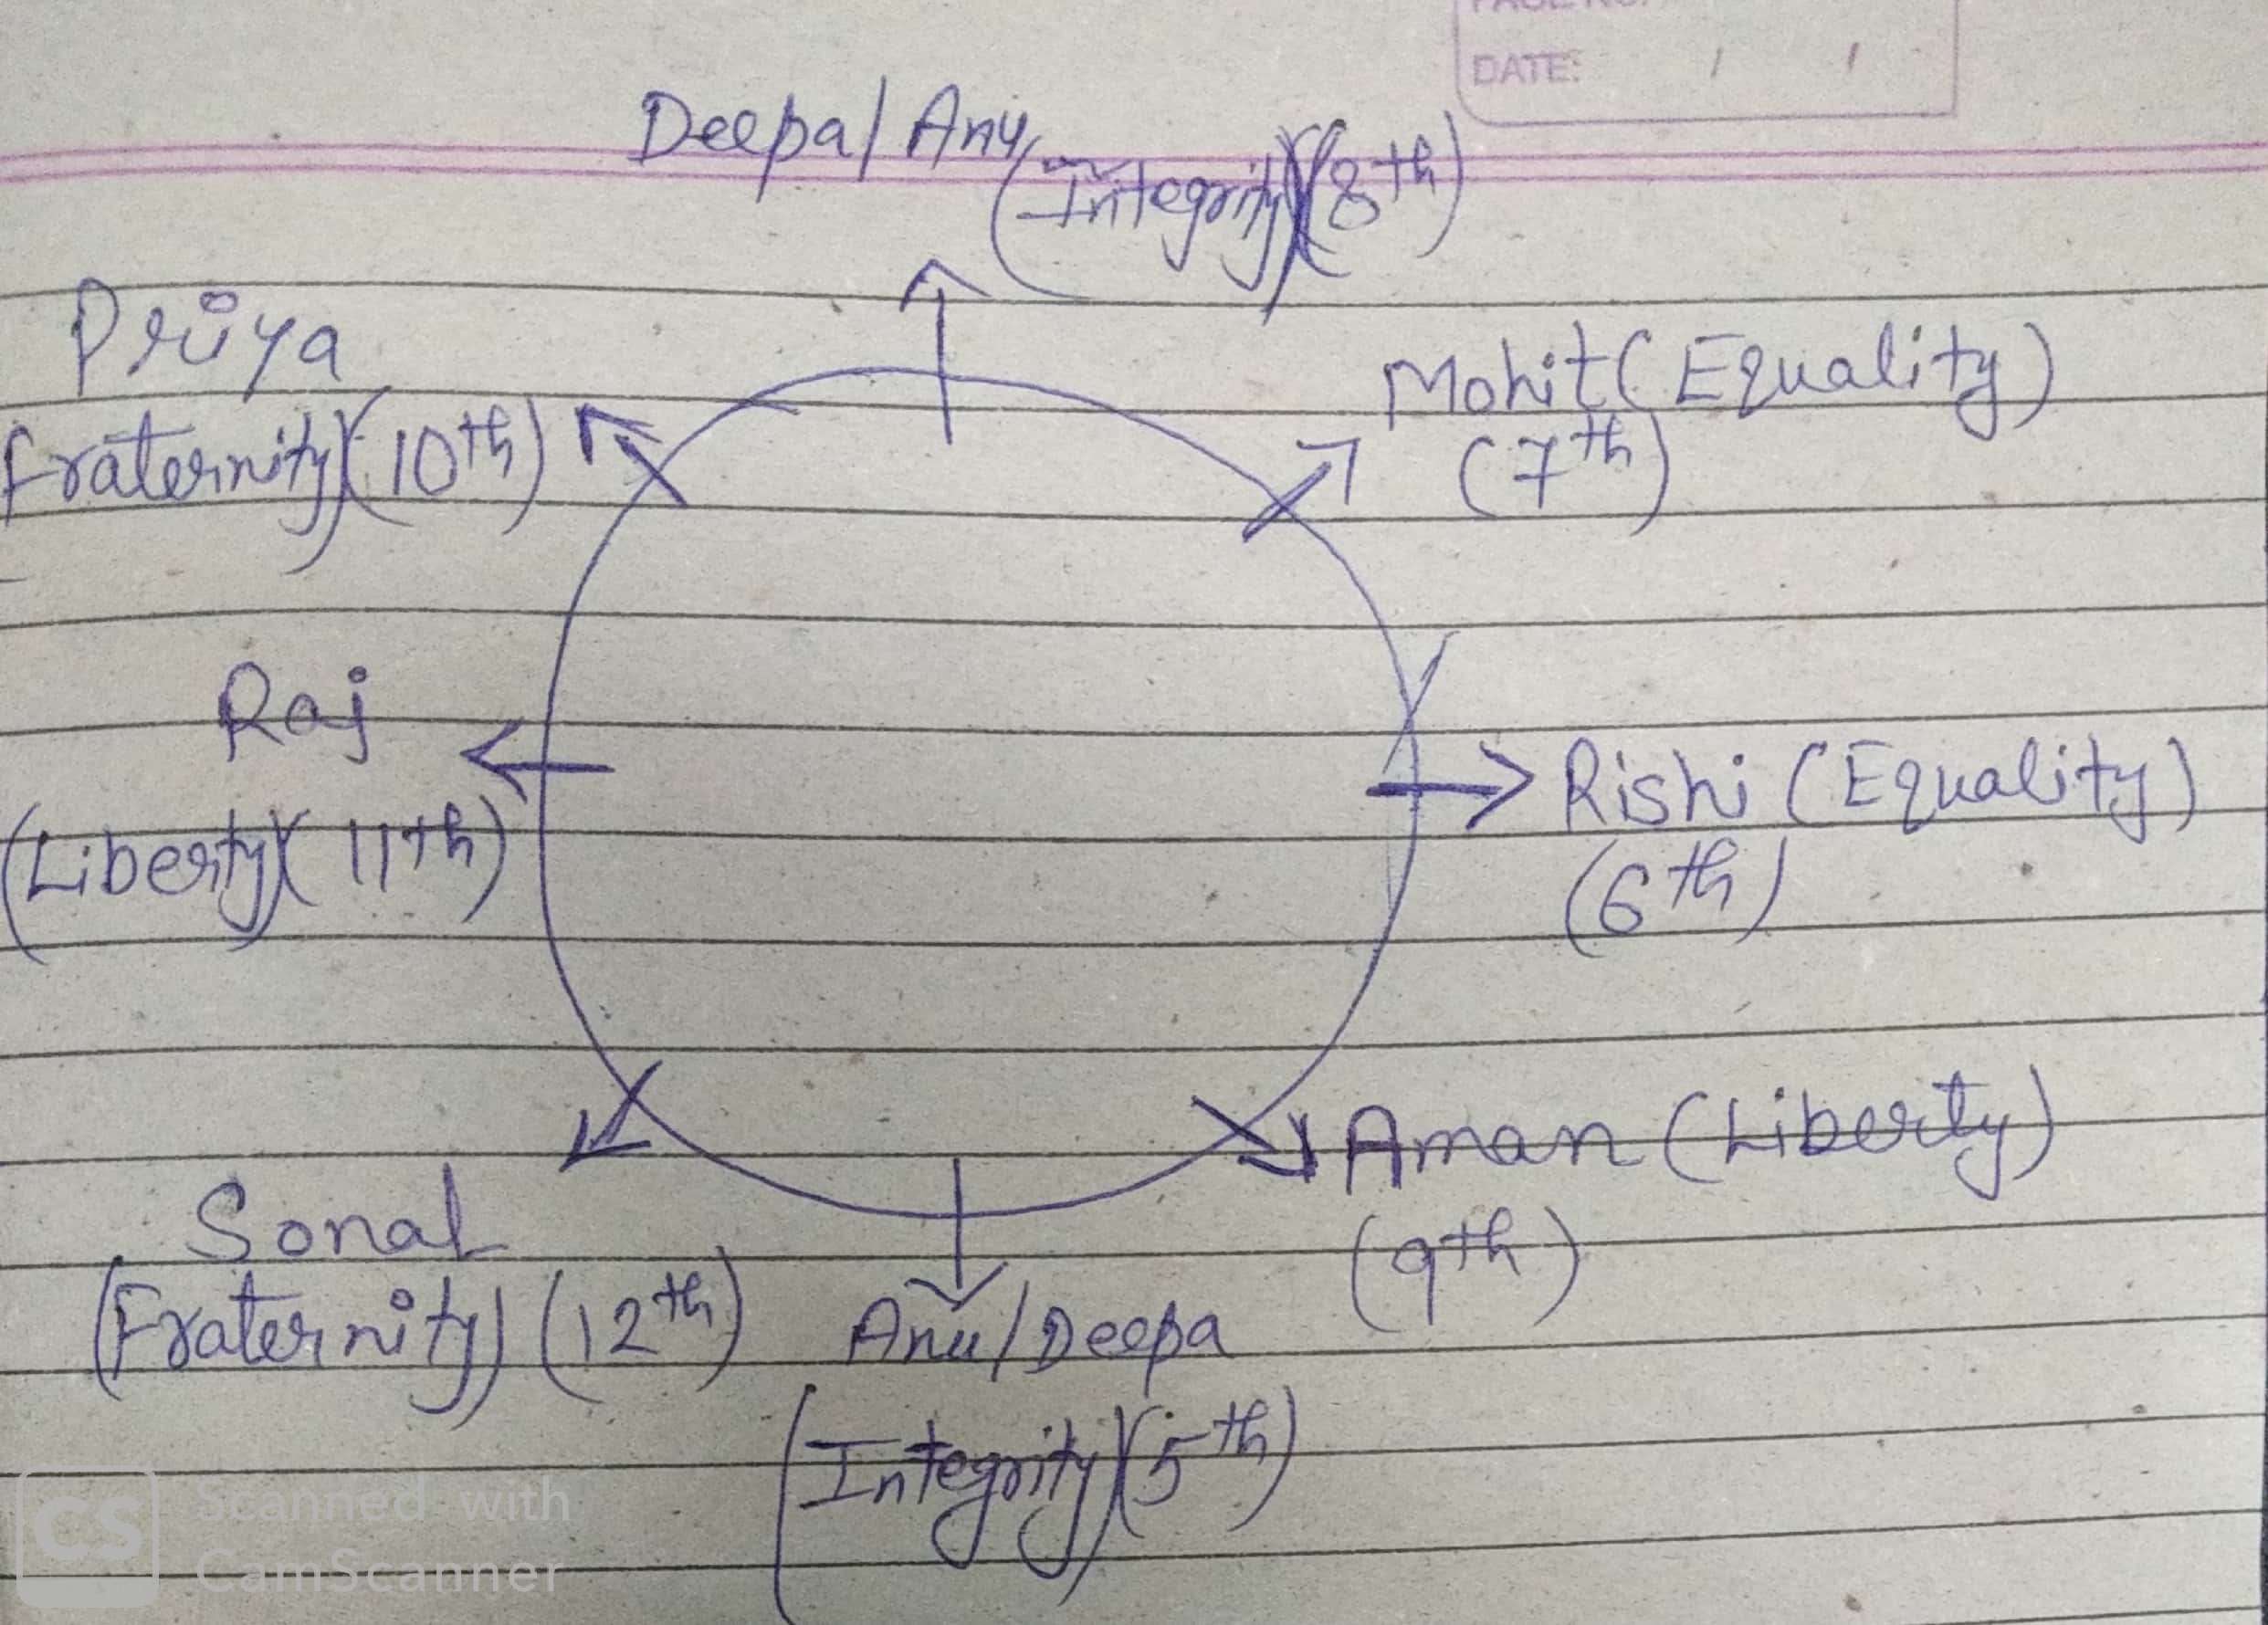 DATE: / /
Deepa/Anu
(Integrity)(8th)
Priya
Fraternity)(10th)
Mohit(Equality)
(7th)
Raj
(Liberty)(11th)
Rishi (Equality)
(6th)
Aman (Liberty)
(9th)
Sonal
(Fraternity) (12th)
Anu/Deepa
(Integrity)(5th)
CS Scanned with
CamScanner